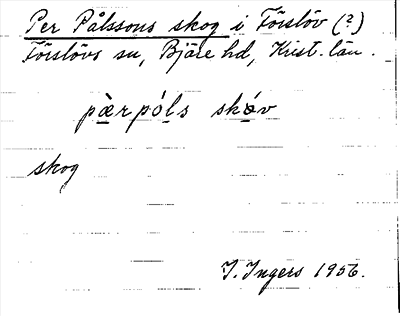 Per Pålssons skog i Förslöv (?)
Förslövs sn, Bjäre hd, Krist. län.
pæ̀rpó̀ls skó̀v
skog
I. Ingers 1956.